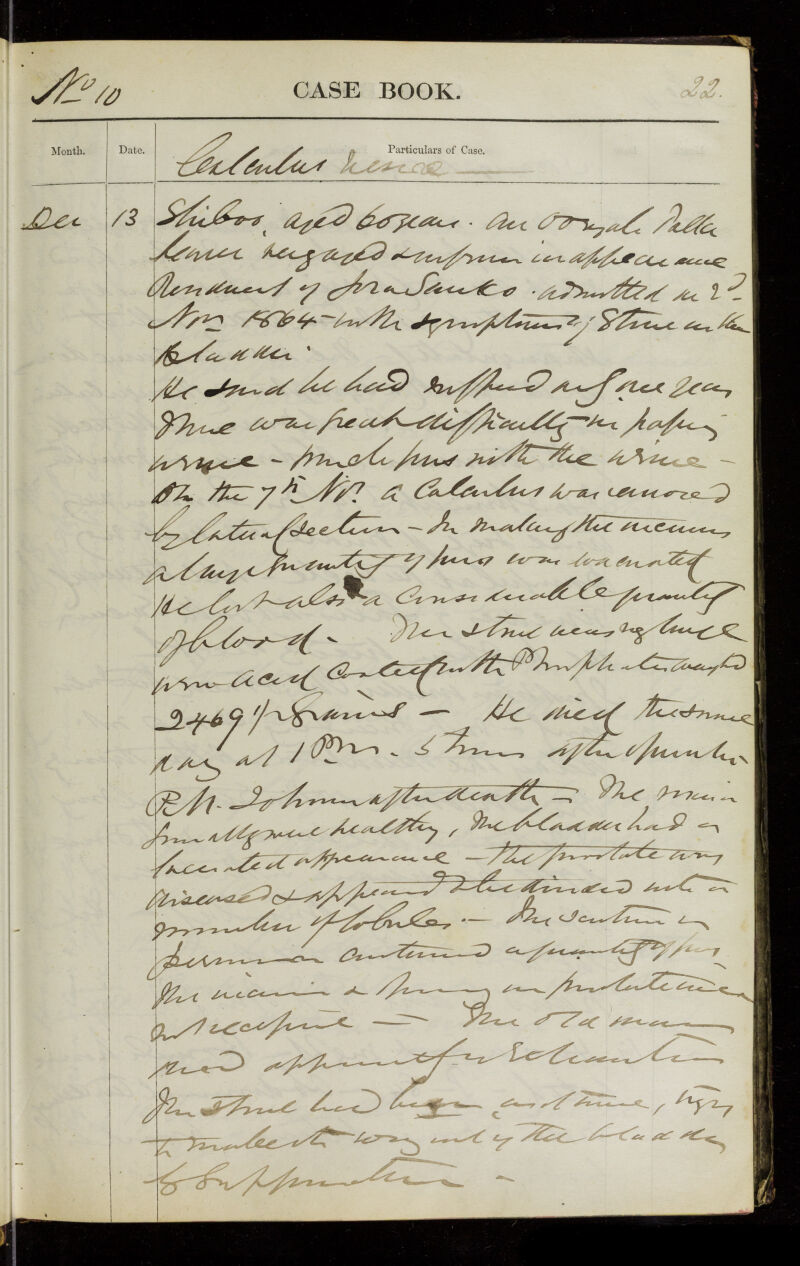 No 10
CASE BOOK.
22.
Month.
Date.
Particulars of Case.
Calculus Vesicae
Dec 13 Shiboo, aged 60 years. an
bearer very aged & infirm in appearance
Resident of Jora Sanko. admitted on 2d
Nov 1864 with symptoms of Stone in the
bladder.
He said he had suffered only one year
There was great difficulty in passing
urine - much pus with the urine -
On the 7th Nov. a Calculus was removed
by lateral section - In making the incisions
a large quantity of pus was evacuated
He lost also a considerable quantity
of blood - The stone very large
uric acid coated with Phosphates weighed
2469 1/2 grains - He died the same
day at 1 P.M. 5 hours after operation
P.M. 20 hours after death - The
generally were healthy, the bladder had a
lacerated appearance - the prostate was
diseased & appeared to be divided into a
number of lobules. - The
perineum contained a quantity of pus
The incision in prostate
not - The old man
died apparently from Exhaustion
The stone had been, trying
to make its way out of the bladder
by Suppuration -